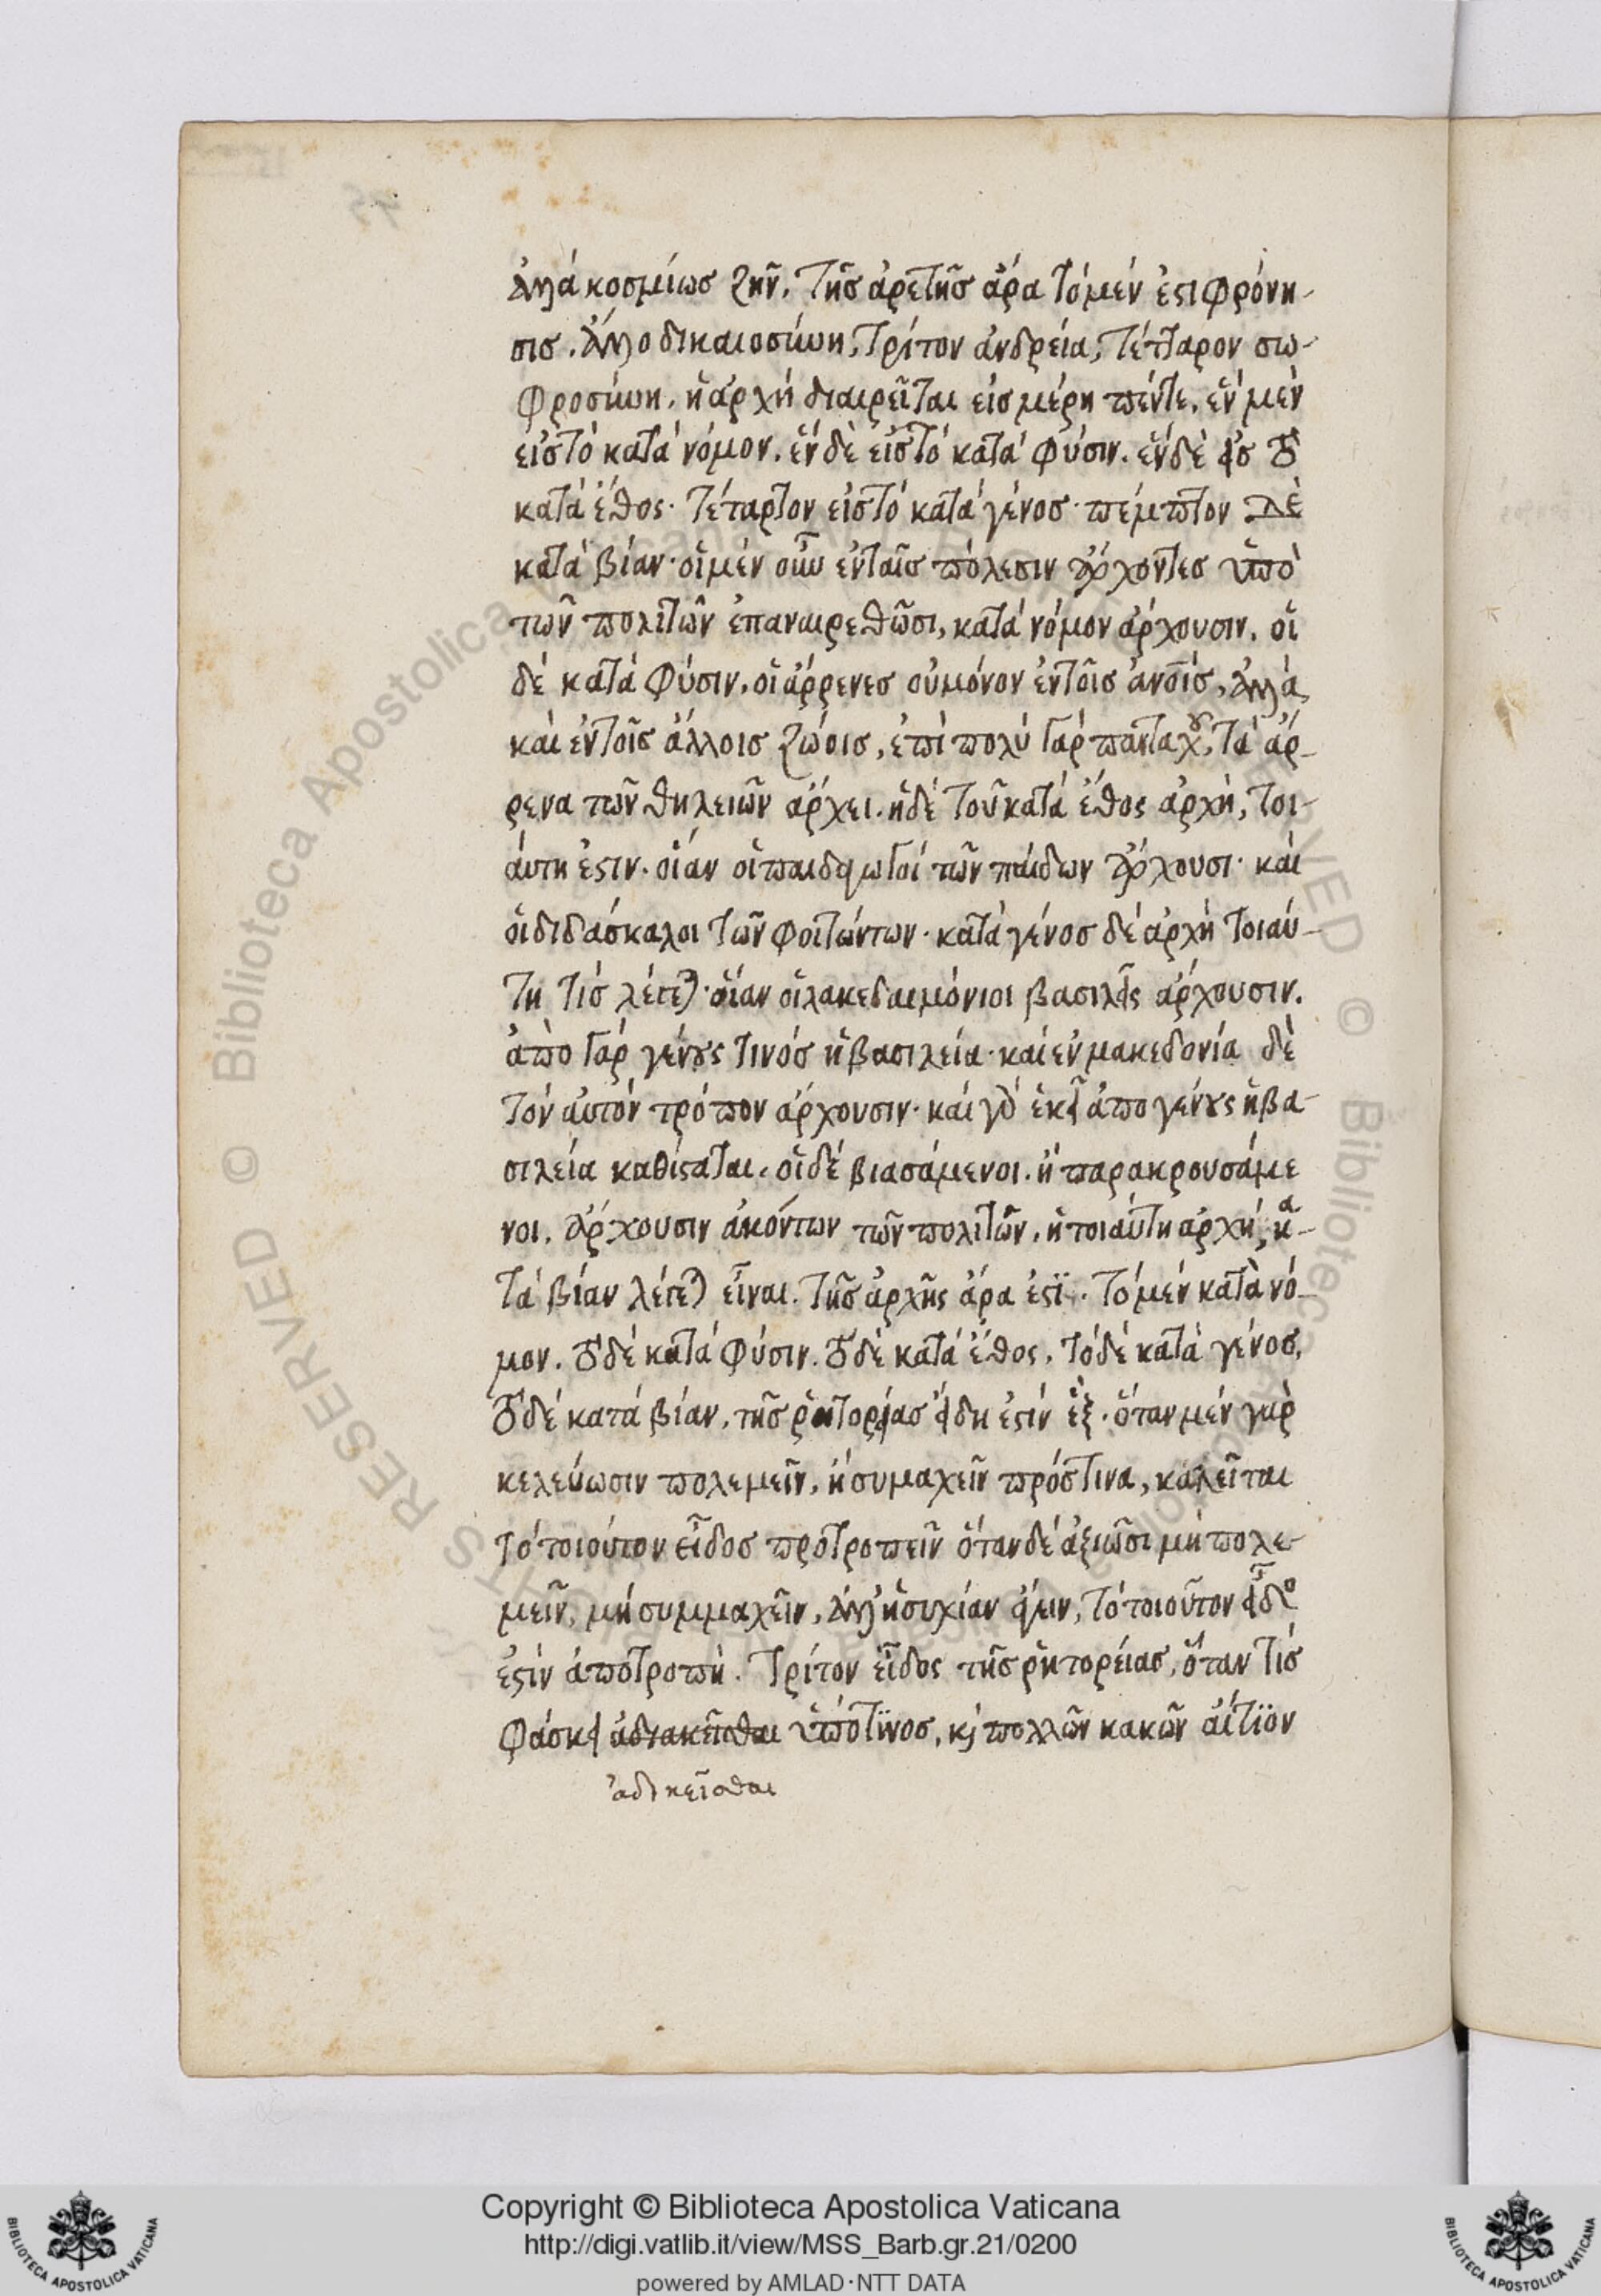 ἀλλά κοσμίως ζῆν. τῆς ἀρετῆς ἄρα τό μέν ἐστι φρόνη-
σις. ἄλλο δικαιοσύνη, τρίτον ἀνδρεία, τέτταρον σω-
φροσύνη. ἡ ἀρχή διαιρεῖται εἰς μέρη πέντε. ἕν μέν
εἰς τό κατά νόμον. ἕν δὲ εἰς τό κατά φύσιν. ἕν δέ εἰς τὸ
κατά ἔθος. τέταρτον εἰς τό κατά γένος. πέμπτον δὲ
κατά βίαν. οἱ μέν οὖν ἐν ταῖς πόλεσιν ἄρχοντες ὑπὸ
τῶν πολιτῶν ἐπαναιρεθῶσι, κατά νόμον ἄρχουσιν. οἱ
δέ κατά φύσιν, οἱ ἄρρενες οὐ μόνον ἐν τοῖς ἀνοις, ἀλλά
καὶ ἐν τοῖς ἄλλοις ζώοις, ἐπί πολύ γάρ πανταχοῦ, τά ἄρ-
ρενα τῶν θηλειῶν ἄρχει. ἡ δέ τοῦ κατά ἔθος ἀρχὴ, τοι-
άυτη ἐστιν. οἵαν οἱ παιδαγωγοί τῶν πάιδων ἄρχουσι. καὶ
οἱ διδάσκαλοι τῶν φοιτώντων. κατά γένος δέ ἀρχὴ τοιαύ-
τη τίς λέγεται. οἵαν οἱ λακεδαιμόνιοι βασιλεῖς ἄρχουσιν.
ἀπὸ γάρ γένους τινός ἡ βασιλεία. καί ἐν μακεδονία δὲ
τόν αὐτόν τρόπον ἄρχουσιν. καί γὰρ ἐκεῖ ἀπο γένους ἡ βα-
σιλεία καθίσταται. οἱ δέ βιασάμενοι. ἤ παρακρουσάμε
νοι. ἄρχουσιν ἀκόντων τῶν πολιτῶν. ἡ τοιαύτη ἀρχή, κα-
τά βίαν λέγεται εἶναι. τῆς ἀρχῆς ἄρα ἐστϊ. τό μέν κατὰ νό-
μον. τό δέ κατά φύσιν. τὸ δὲ κατά ἔθος. τό δέ κατὰ γένος.
τὸ δέ κατά βίαν. τῆς ῥητορείας εἴδη ἐστίν ἕξ. ὅταν μέν γὰρ
κελεύωσιν πολεμεῖν. ἤ συμαχεῖν πρός τινα, καλεῖται
τό τοιούτον εἶδος προτροπεῖν ὅταν δέ ἀξιῶσι μή πολε-
μεῖν, μή συμμαχεῖν, ἀλλ' ἡσυχίαν ἄγειν, τό τοιοῦτον εἶδος
ἐστὶν ἀποτροπή. τρίτον εἶδος τῆς ῥητορείας, ὅταν τίς
φάσκει ἀδιακεῖσθαι ὑπό τϊνος, κὶ πολλῶν κακῶν ἀίτϊον
ἀδικεῖσθαι
Copyright © Biblioteca Apostolica Vaticana
http://digi.vatlib.it/view/MSS_Barb.gr.21/0200
powered by AMLAD·NTT DATA